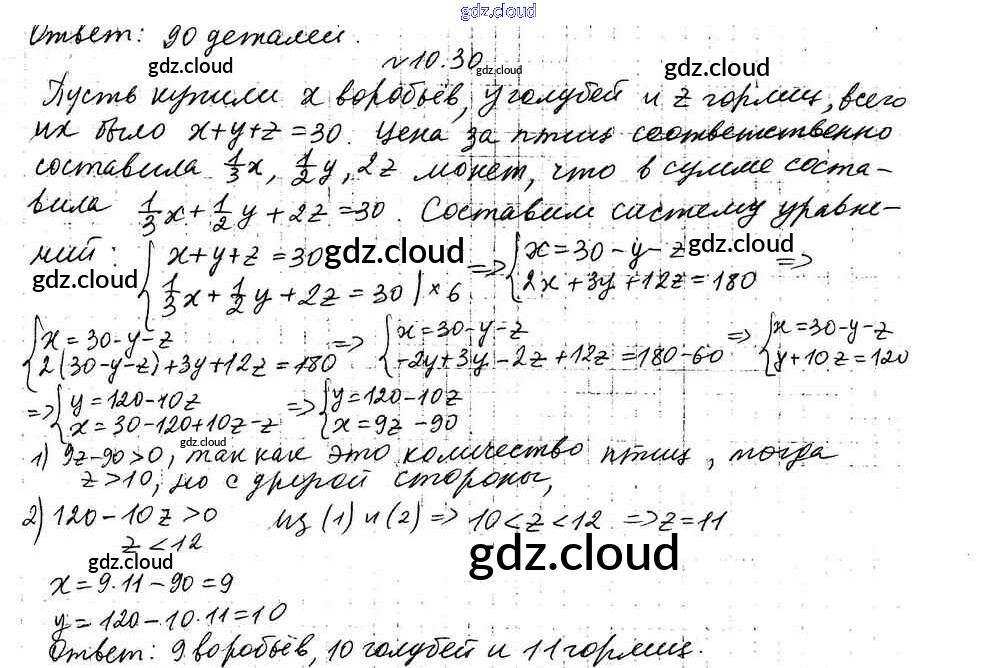 gdz.cloud
Ответ: 90 деталей.
gdz.cloud
№10.30
gdz.cloud
gdz.cloud
Пусть купили x воробьёв, y голубей и z горлиц, всего
их было x+y+z=30. Цена за птиц соответственно
составила 1/3x, 1/2y, 2z монет, что в сумме соста-
вила 1/3x + 1/2y + 2z = 30. Составим систему уравне-
ний: { x+y+z=30 ; 1/3x + 1/2y + 2z = 30 | ×6 => { x=30-y-z ; 2x+3y+12z=180 =>
gdz.cloud
gdz.cloud
gdz.cloud
{ x=30-y-z ; 2(30-y-z)+3y+12z=180 => { x=30-y-z ; -2y+3y-2z+12z=180-60 => { x=30-y-z ; y+10z=120
=> { y=120-10z ; x=30-120+10z-z => { y=120-10z ; x=9z-90
gdz.cloud
1) 9z-90>0, так как это количество птиц, тогда
z>10, но с другой стороны,
2) 120-10z>0 из (1) и (2) => 10<z<12 => z=11
z<12
gdz.cloud
gdz.cloud
x=9·11-90=9
y=120-10·11=10
Ответ: 9 воробьёв, 10 голубей и 11 горлиц.